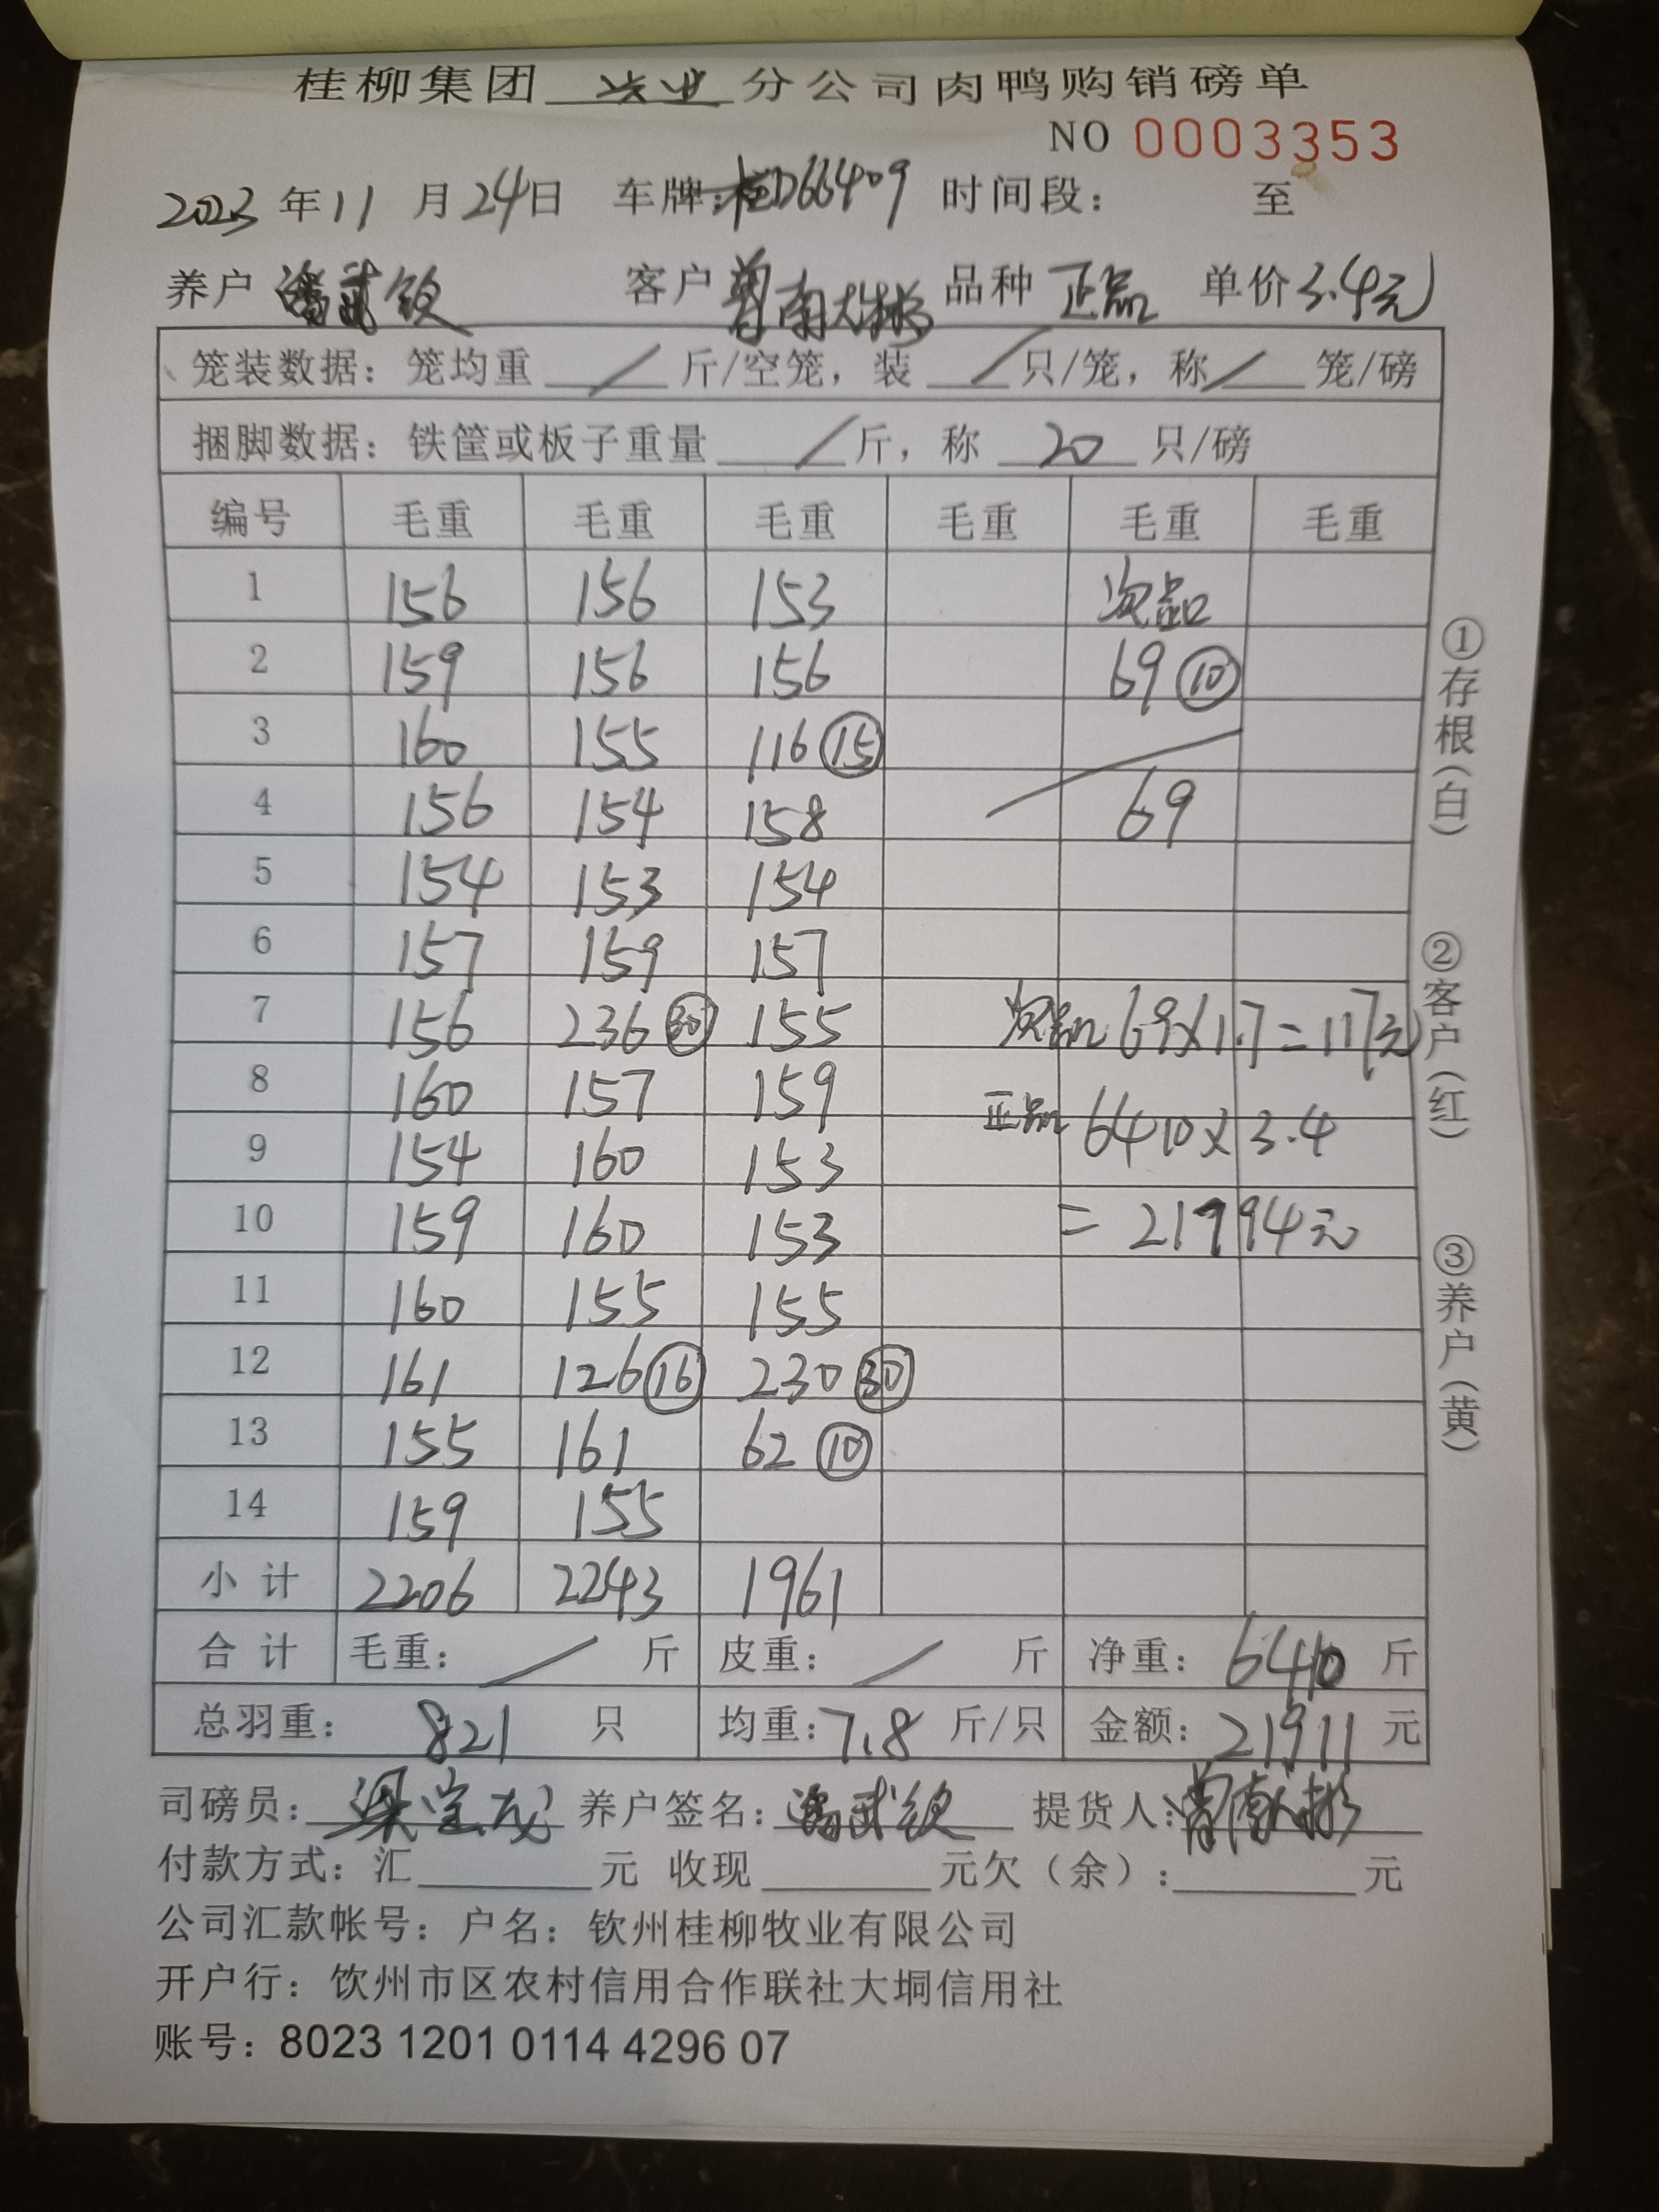 桂柳集团 兴业 分公司肉鸭购销磅单
NO 0003353
2023 年 11 月 24 日 车牌：桂D66409 时间段： 至
养户 潘武钦 客户 曾南大彬 品种 正品 单价 3.4元
笼装数据：笼均重 / 斤/空笼，装 / 只/笼，称 / 笼/磅
捆脚数据：铁筐或板子重量 / 斤，称 20 只/磅
编号 毛重 毛重 毛重 毛重 毛重 毛重
1 156 156 153 次品
2 159 156 156 69 ⑩
3 160 155 116 ⑮
4 156 154 158 69
5 154 153 154
6 157 159 157
7 156 236 ㉚ 155 次品 69×1.7=117元
8 160 157 159 正品 6410×3.4
9 154 160 153
10 159 160 153 = 21794元
11 160 155 155
12 161 126 ⑯ 230 ㉚
13 155 161 62 ⑩
14 159 155
小计 2206 2243 1961
合计 毛重： / 斤 皮重： / 斤 净重： 6410 斤
总羽重： 821 只 均重：7.8 斤/只 金额：21911 元
司磅员： 梁宝茂 养户签名：潘武钦 提货人：
付款方式：汇 元 收现 元欠（余）： 元
公司汇款帐号：户名：钦州桂柳牧业有限公司
开户行：饮州市区农村信用合作联社大垌信用社
账号：8023 1201 0114 4296 07
①存根（白）
②客户（红）
③养户（黄）